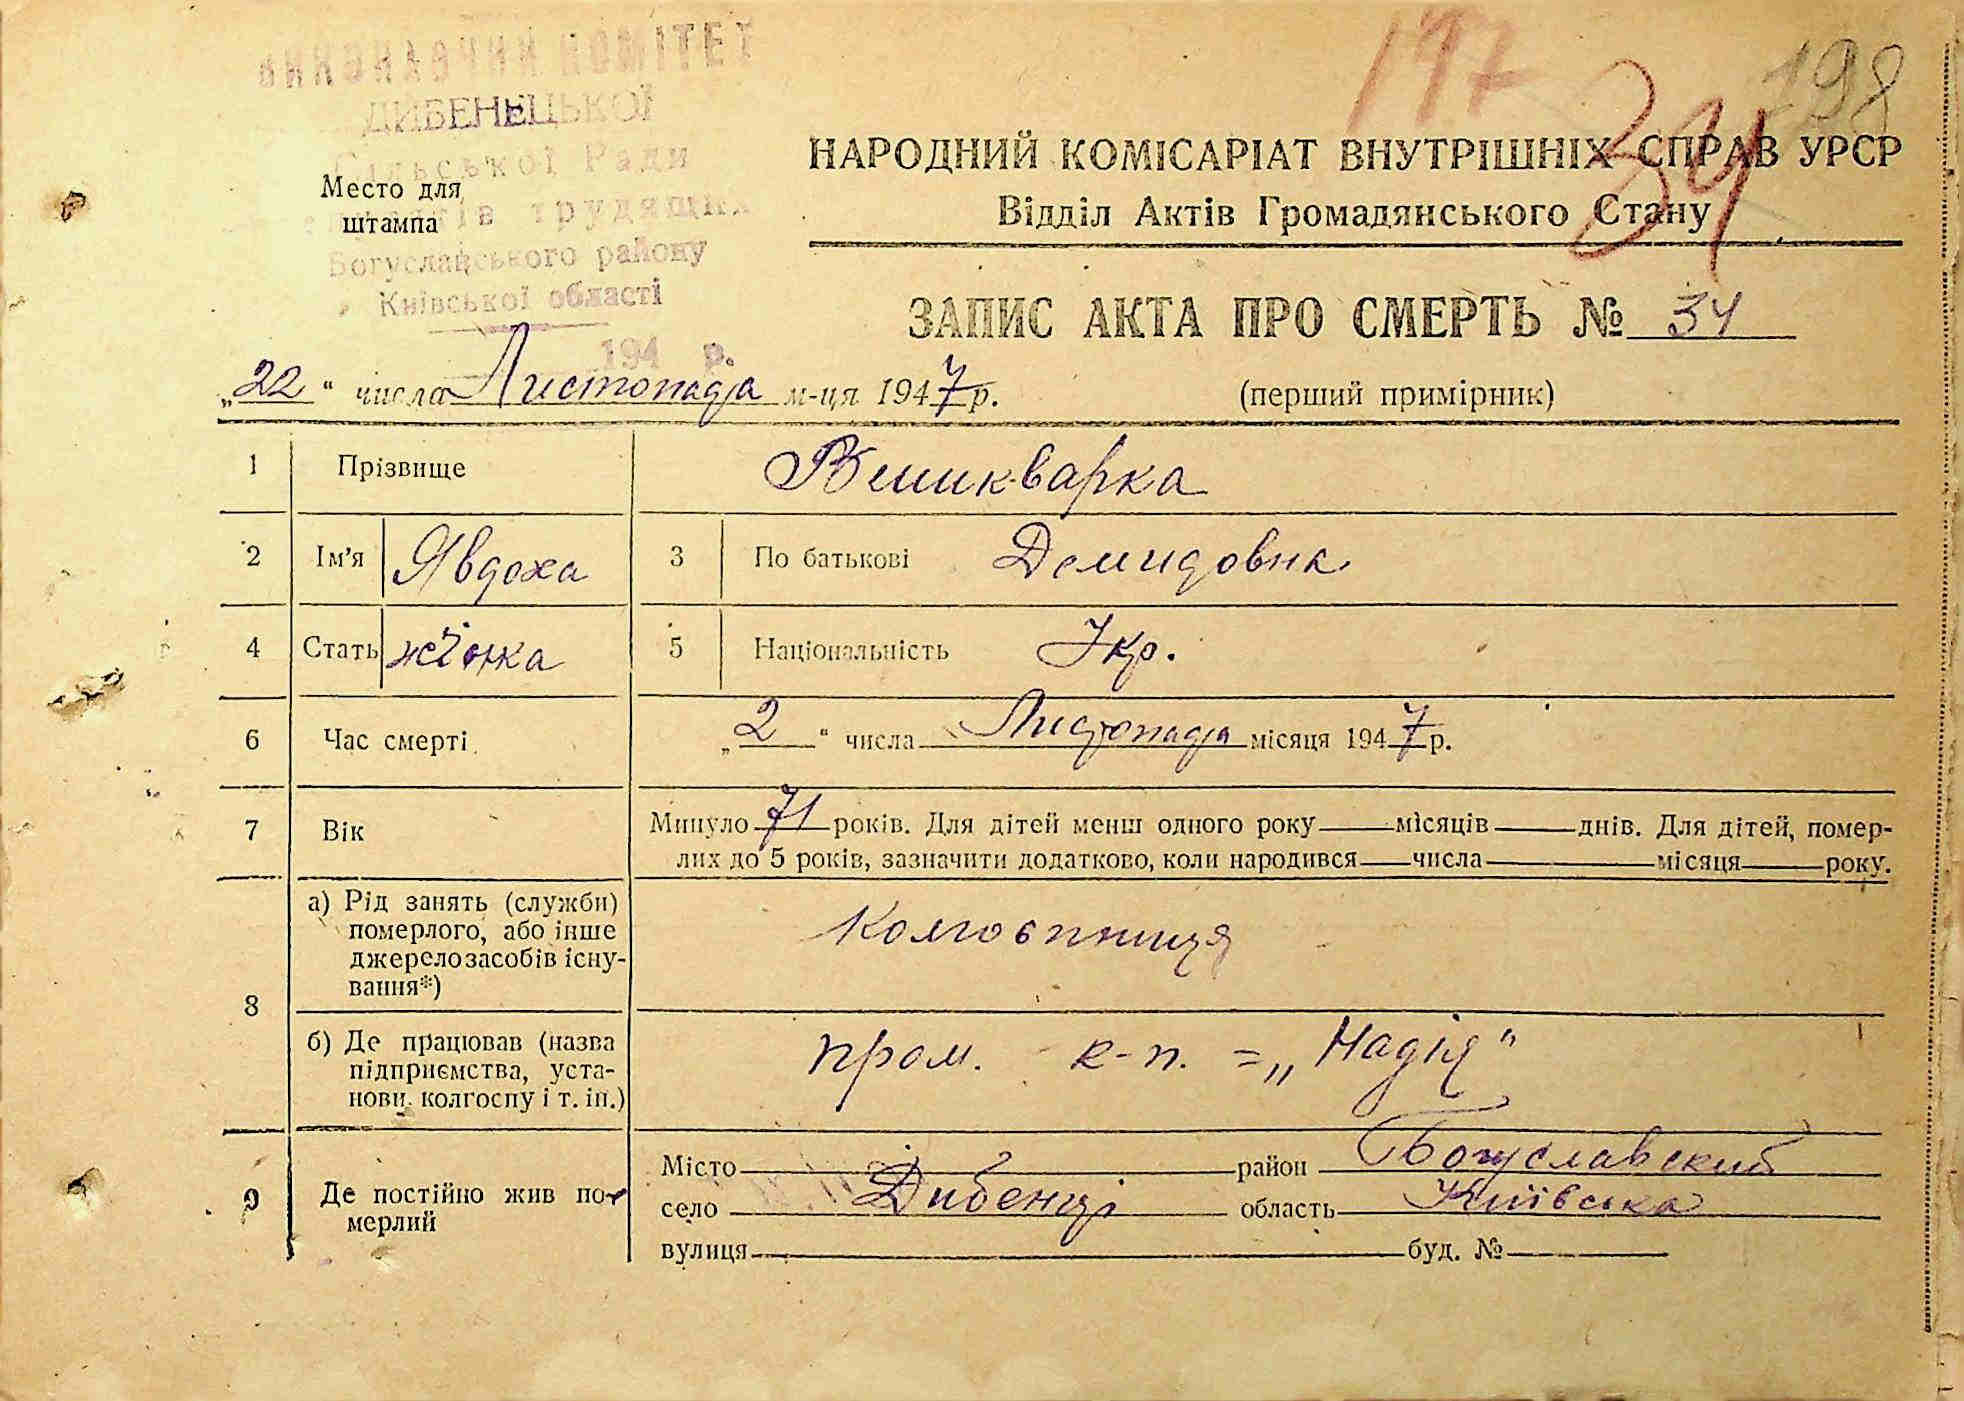 197
198
34
ВИКОНАВЧИЙ КОМІТЕТ
ДИБЕНЕЦЬКОЇ
Сільської Ради
депутатів трудящих
Богуславського району
Київської області
194 р.
Место для
штампа
НАРОДНИЙ КОМІСАРІАТ ВНУТРІШНІХ СПРАВ УРСР
Відділ Актів Громадянського Стану
ЗАПИС АКТА ПРО СМЕРТЬ № 34
„22“ числа Листопада м-ця 1947 р.
(перший примірник)
1 Прізвище Вишкварка
2 Ім'я Явдоха 3 По батькові Демидовна
4 Стать жінка 5 Національність Укр.
6 Час смерті „2“ числа Листопада місяця 1947 р.
7 Вік Минуло 71 років. Для дітей менш одного року місяців днів. Для дітей, помер-
лих до 5 років, зазначити додатково, коли народився числа місяця року.
8 а) Рід занять (служби)
померлого, або інше
джерело засобів існу-
вання*)
Колгоспниця
б) Де працював (назва
підприємства, уста-
нови, колгоспу і т. ін.)
пром. к-п. = „Надія"
9 Де постійно жив по-
мерлий
Місто район Богуславский
село Дибенці область Київська
вулиця буд. №